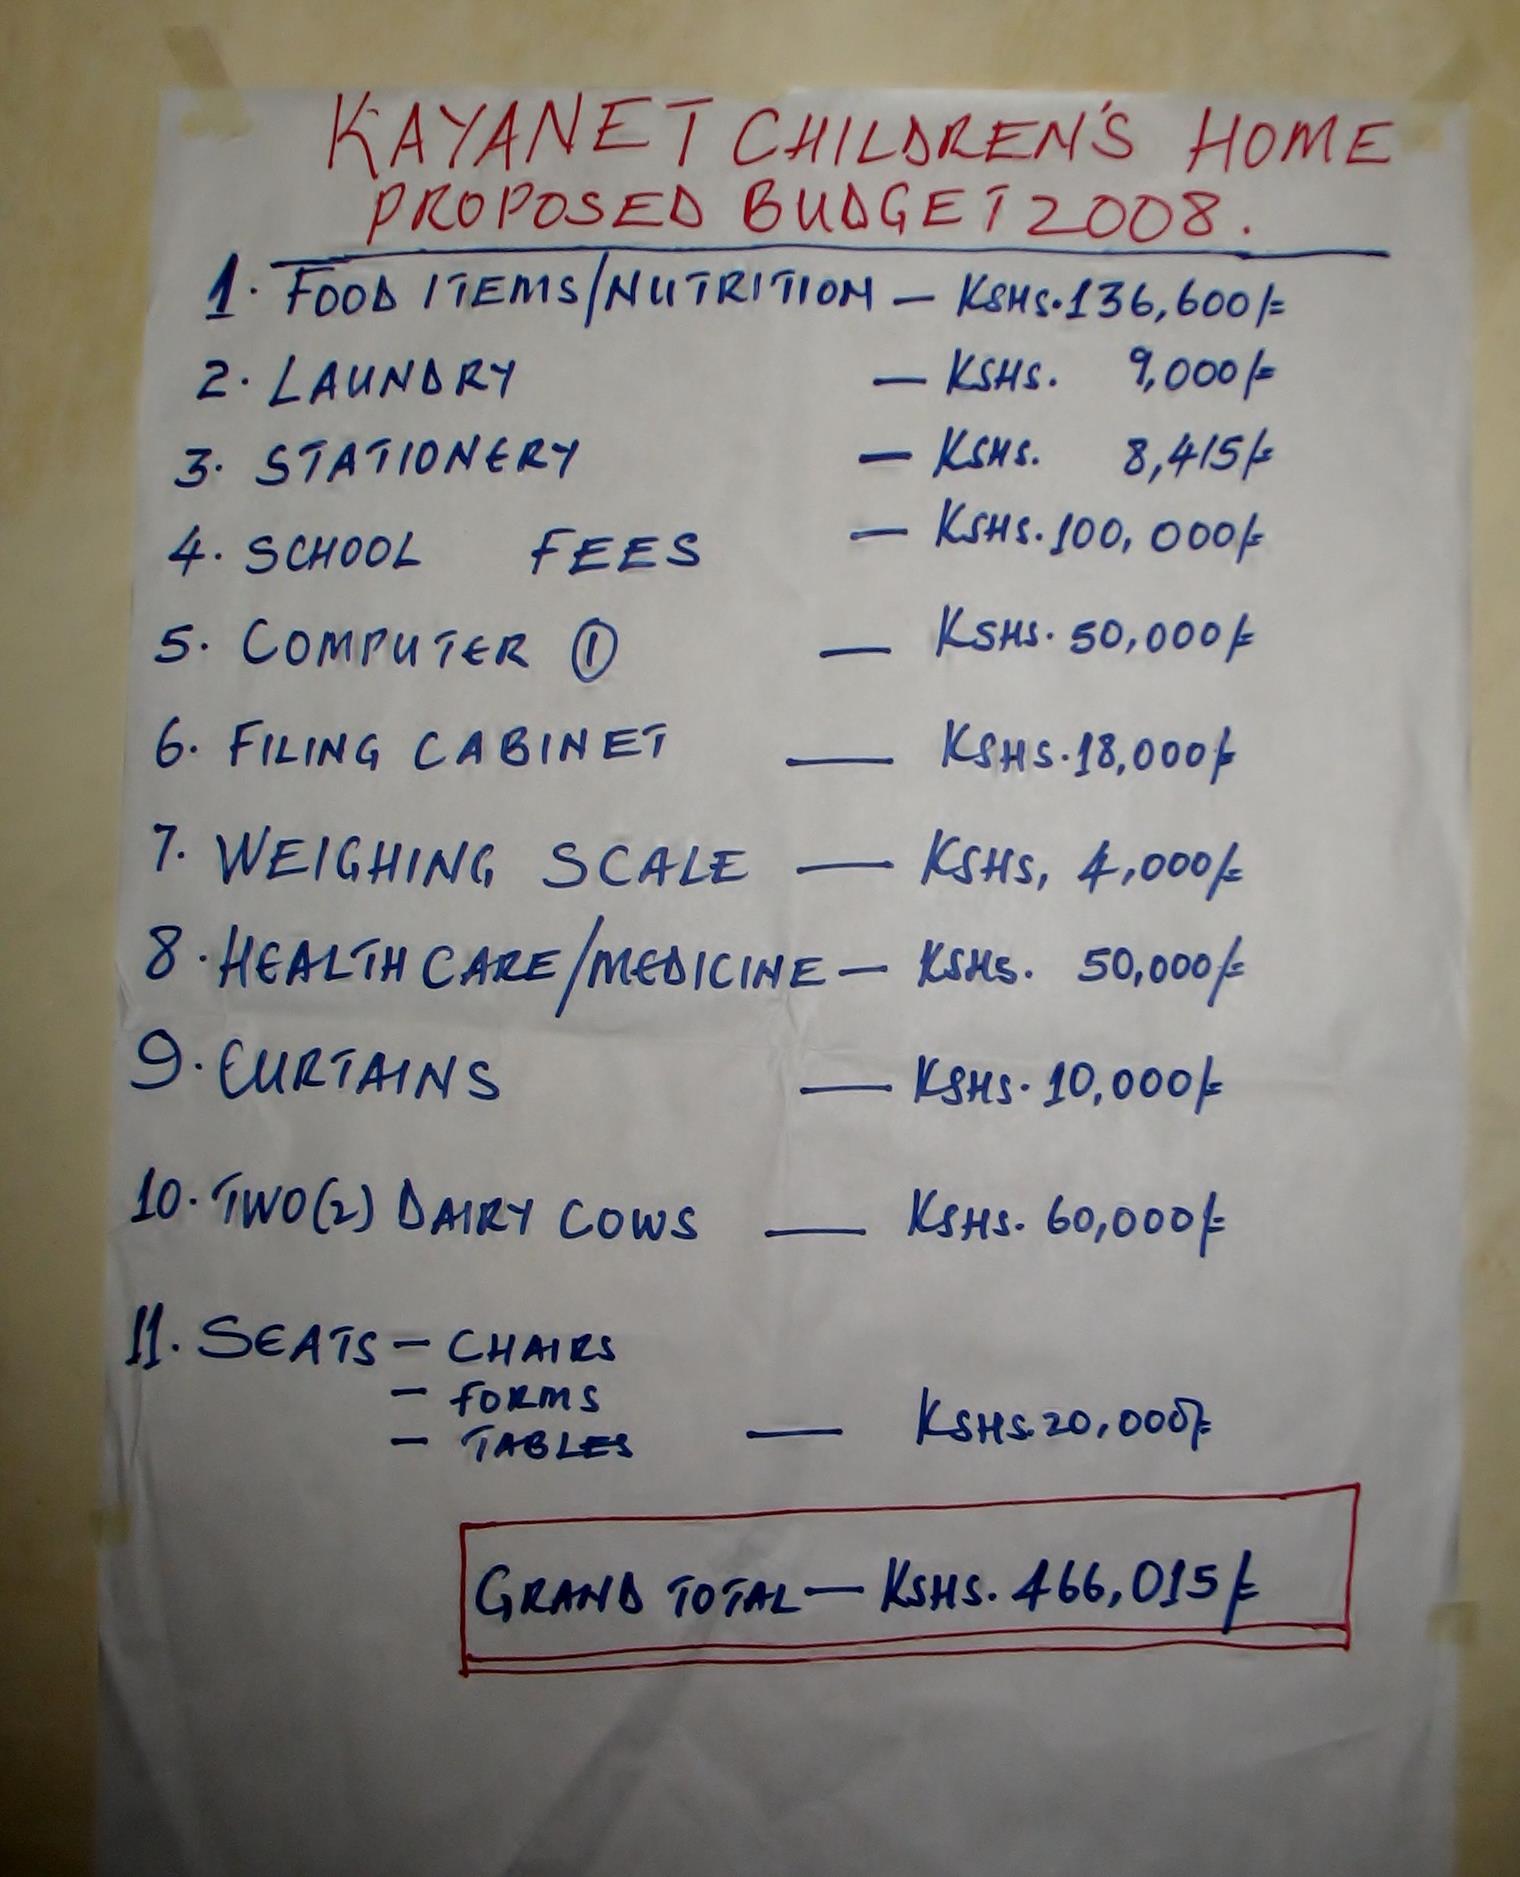 KAYANET CHILDREN'S HOME
PROPOSED BUDGET 2008.
1. FOOD ITEMS/NUTRITION — KSHS. 136,600/=
2. LAUNDRY — KSHS. 9,000/=
3. STATIONERY — KSHS. 8,415/=
4. SCHOOL FEES — KSHS. 100,000/=
5. COMPUTER ① — KSHS. 50,000/=
6. FILING CABINET — KSHS. 18,000/=
7. WEIGHING SCALE — KSHS, 4,000/=
8. HEALTH CARE/MEDICINE — KSHS. 50,000/=
9. CURTAINS — KSHS. 10,000/=
10. TWO(2) DAIRY COWS — KSHS. 60,000/=
11. SEATS – CHAIRS
– FORMS
– TABLES — KSHS. 20,000/=
GRAND TOTAL — KSHS. 466,015/=